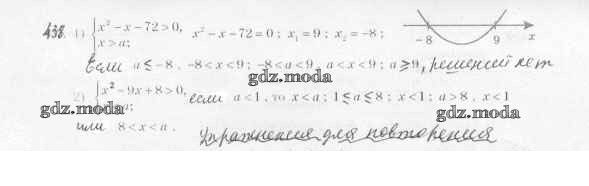 438. 1) { x² − x − 72 > 0, x² − x − 72 = 0 ; x₁ = 9 ; x₂ = −8 ;
x > a;
−8 9 x
Если a ≤ −8, −8 < x < 9 ; −8 < a < 9, a < x < 9 ; a ⩾ 9, решений нет
gdz.moda
2) { x² − 9x + 8 > 0, если a < 1, то x < a ; 1 ≤ a ≤ 8 ; x < 1 ; a > 8, x < 1
gdz.moda a; gdz.moda
или 8 < x < a.
Упражнения для повторения